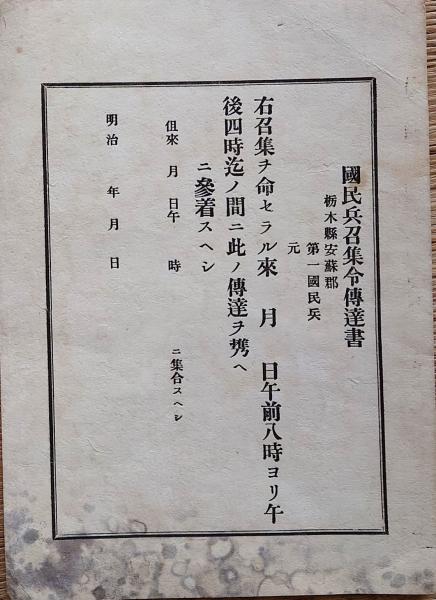 國民兵召集令傳達書
栃木縣安蘇郡
第一國民兵
元
右召集ヲ命セラル來　月　日午前八時ヨリ午
後四時迄ノ間ニ此ノ傳達ヲ携ヘ
ニ參着スヘシ
但來　月　日午　時　ニ集合スヘシ
明治　年　月　日